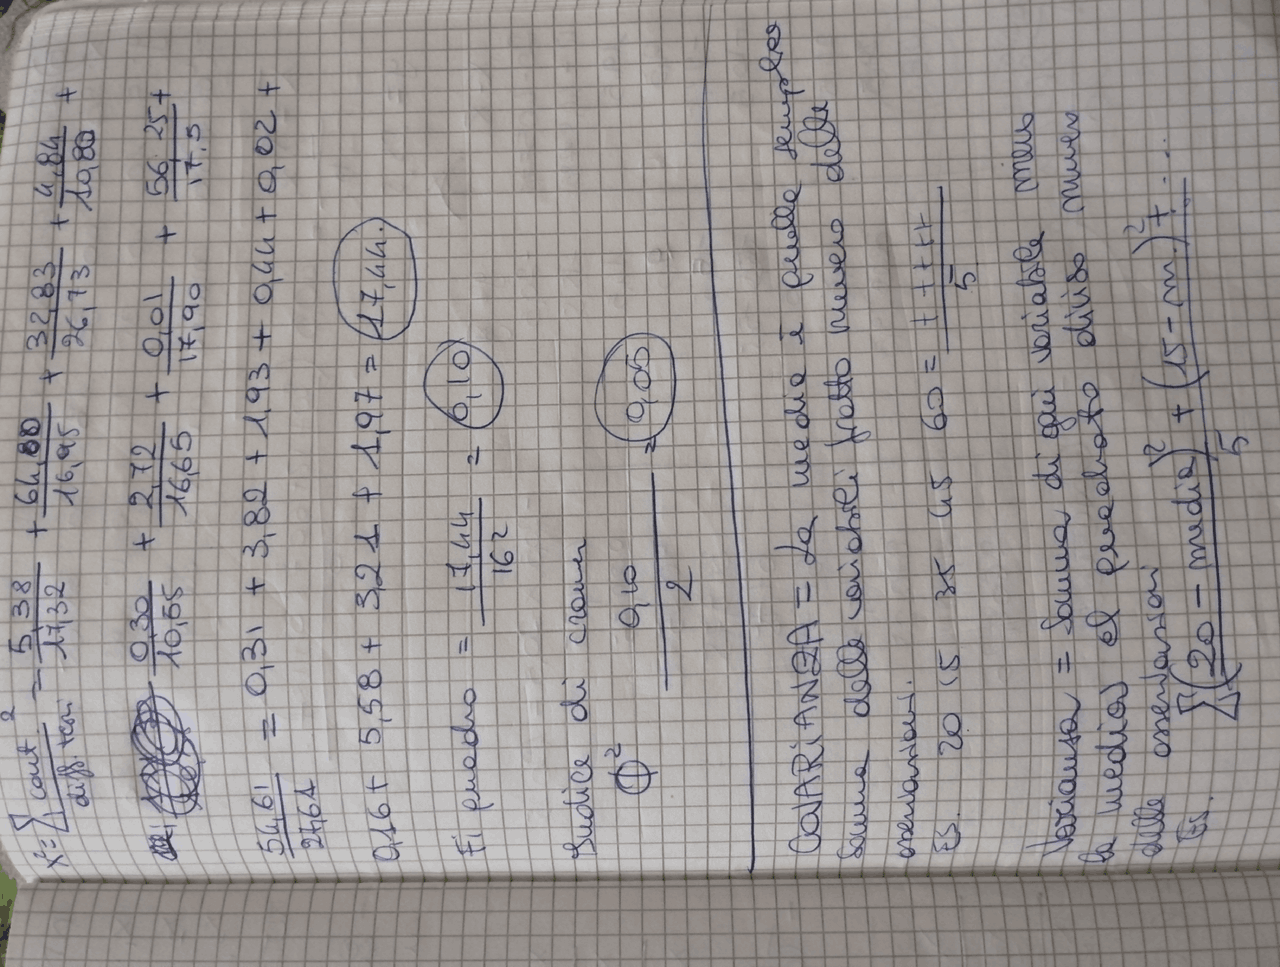 X² = Σ cont² / diff teor = 5,38 / 17,32 + 64,80 / 16,95 + 32,83 / 26,73 + 4,84 / 10,80 +
0,30 / 10,55 + 2,72 / 16,65 + 0,01 / 17,90 + 56,25 / 17,5 +
54,61 / 27,61 = 0,31 + 3,82 + 1,93 + 0,44 + 0,02 +
0,16 + 5,58 + 3,21 + 1,97 = 17,44.
Fi quadro = 17,44 / 162 = 0,10
Indice di cramer
Φ² 0,10 / 2 = 0,05
COVARIANZA = La media è quella semplice
somma delle variabili fratto numero delle
osservazioni.
Es. 20 15 35 45 60 = + + + + / 5
Varianza = somma di ogni variabile meno
la media al quadrato diviso numero
delle osservazioni
Es. Σ (20 - media)² + (15 - m.)² + ... / 5